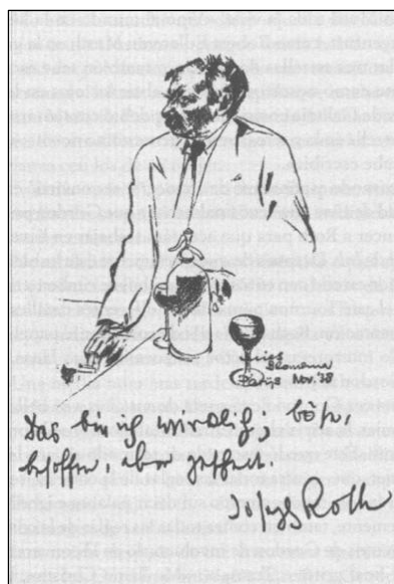 Parijs Nov
Das bin ich wirklich, böse,
besoffen, aber gescheit.
Joseph Roth